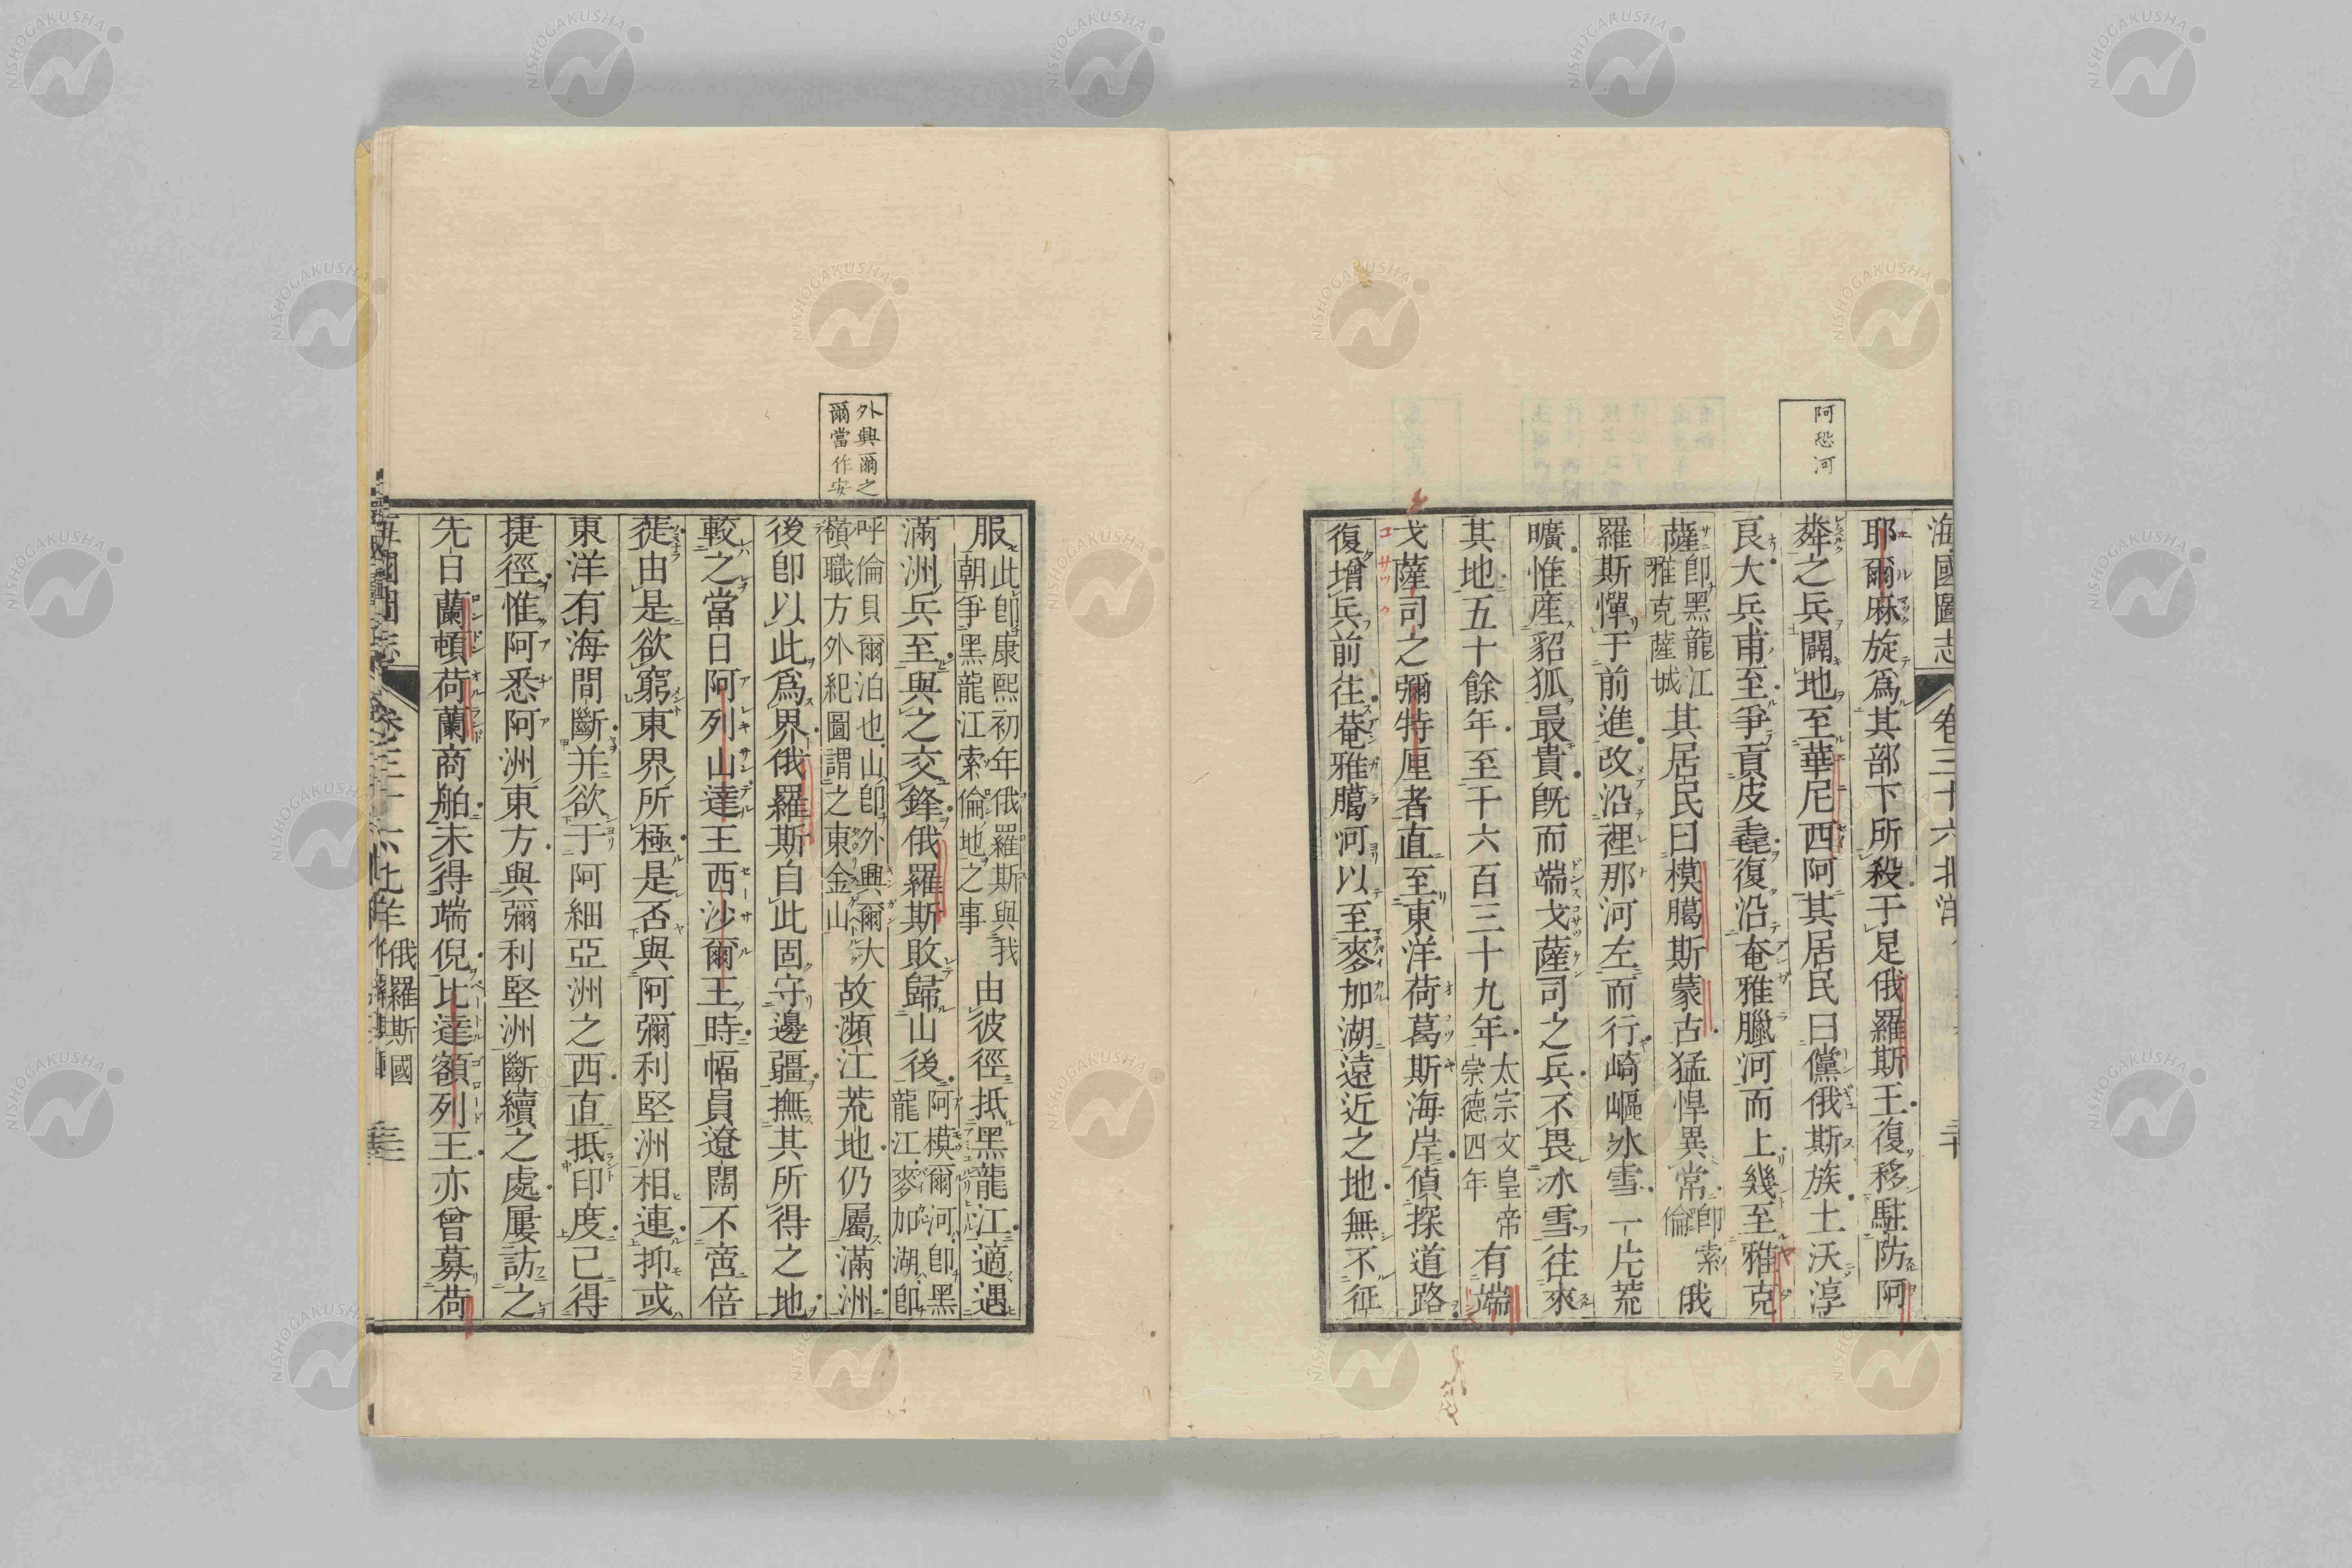 阿恐河
海國圖志 卷三十六 北洋
耶爾麻旋爲其部下所殺于是俄羅斯王復移駐防阿
葬之兵闢地至華尼西阿其居民曰儻俄斯族土沃淳
良大兵甫至爭貢皮毳復沿奄雅臘河而上幾至雅克
薩卽黑龍江雅克薩城其居民曰模臈斯蒙古猛悍異常卽索倫俄
羅斯憚于前進改沿裡那河左而行崎嶇冰雪一片荒
曠惟産貂狐最貴旣而端戈薩司之兵不畏冰雪往來
其地五十餘年至千六百三十九年太宗文皇帝崇德四年有端
戈薩司之彌特厘者直至東洋荷葛斯海岸偵探道路
復增兵前往菴雅臈河以至麥加湖遠近之地無不征
コサツク
外興爾之
爾當作安
服此卽康熙初年俄羅斯與我朝爭黑龍江索倫地之事由彼徑抵黑龍江適遇
滿洲兵至與之交鋒俄羅斯敗歸山後阿模爾河卽黑龍江麥加湖卽
呼倫貝爾泊也山卽外興爾大嶺職方外紀圖謂之東金山故瀕江荒地仍屬滿洲
後卽以此爲界俄羅斯自此固守邊疆撫其所得之地
較之當日阿列山達王西沙爾王時幅員遼闊不啻倍
蓰由是欲窮東界所極是否與阿彌利堅洲相連抑或
東洋有海間斷并欲于阿細亞洲之西直抵印度已得
捷徑惟阿悉阿洲東方與彌利堅洲斷續之處屢訪之
先日蘭頓荷蘭商舶未得端倪比達額列王亦曾募荷
海國圖志 卷三十六 北洋 俄羅斯國